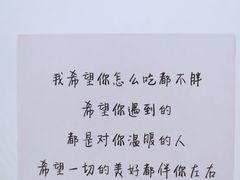 我希望你怎么吃都不胖
希望你遇到的
都是对你温暖的人
希望一切的美好都伴你左右